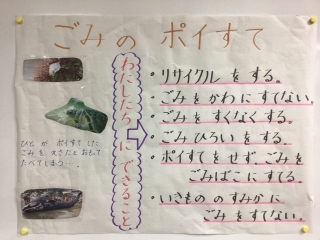 ごみの ポイすて
ひと が ポイすて した
ごみ を えさだと おもって
たべてしまう…。
わたしたちにできること
・リサイクル を する。
・ごみ を かわ に すてない。
・ごみ を すくなく する。
・ごみ ひろい を する。
・ポイすて を せず、ごみを
ごみばこに すてる。
・いきもの の すみか に
ごみ を すてない。